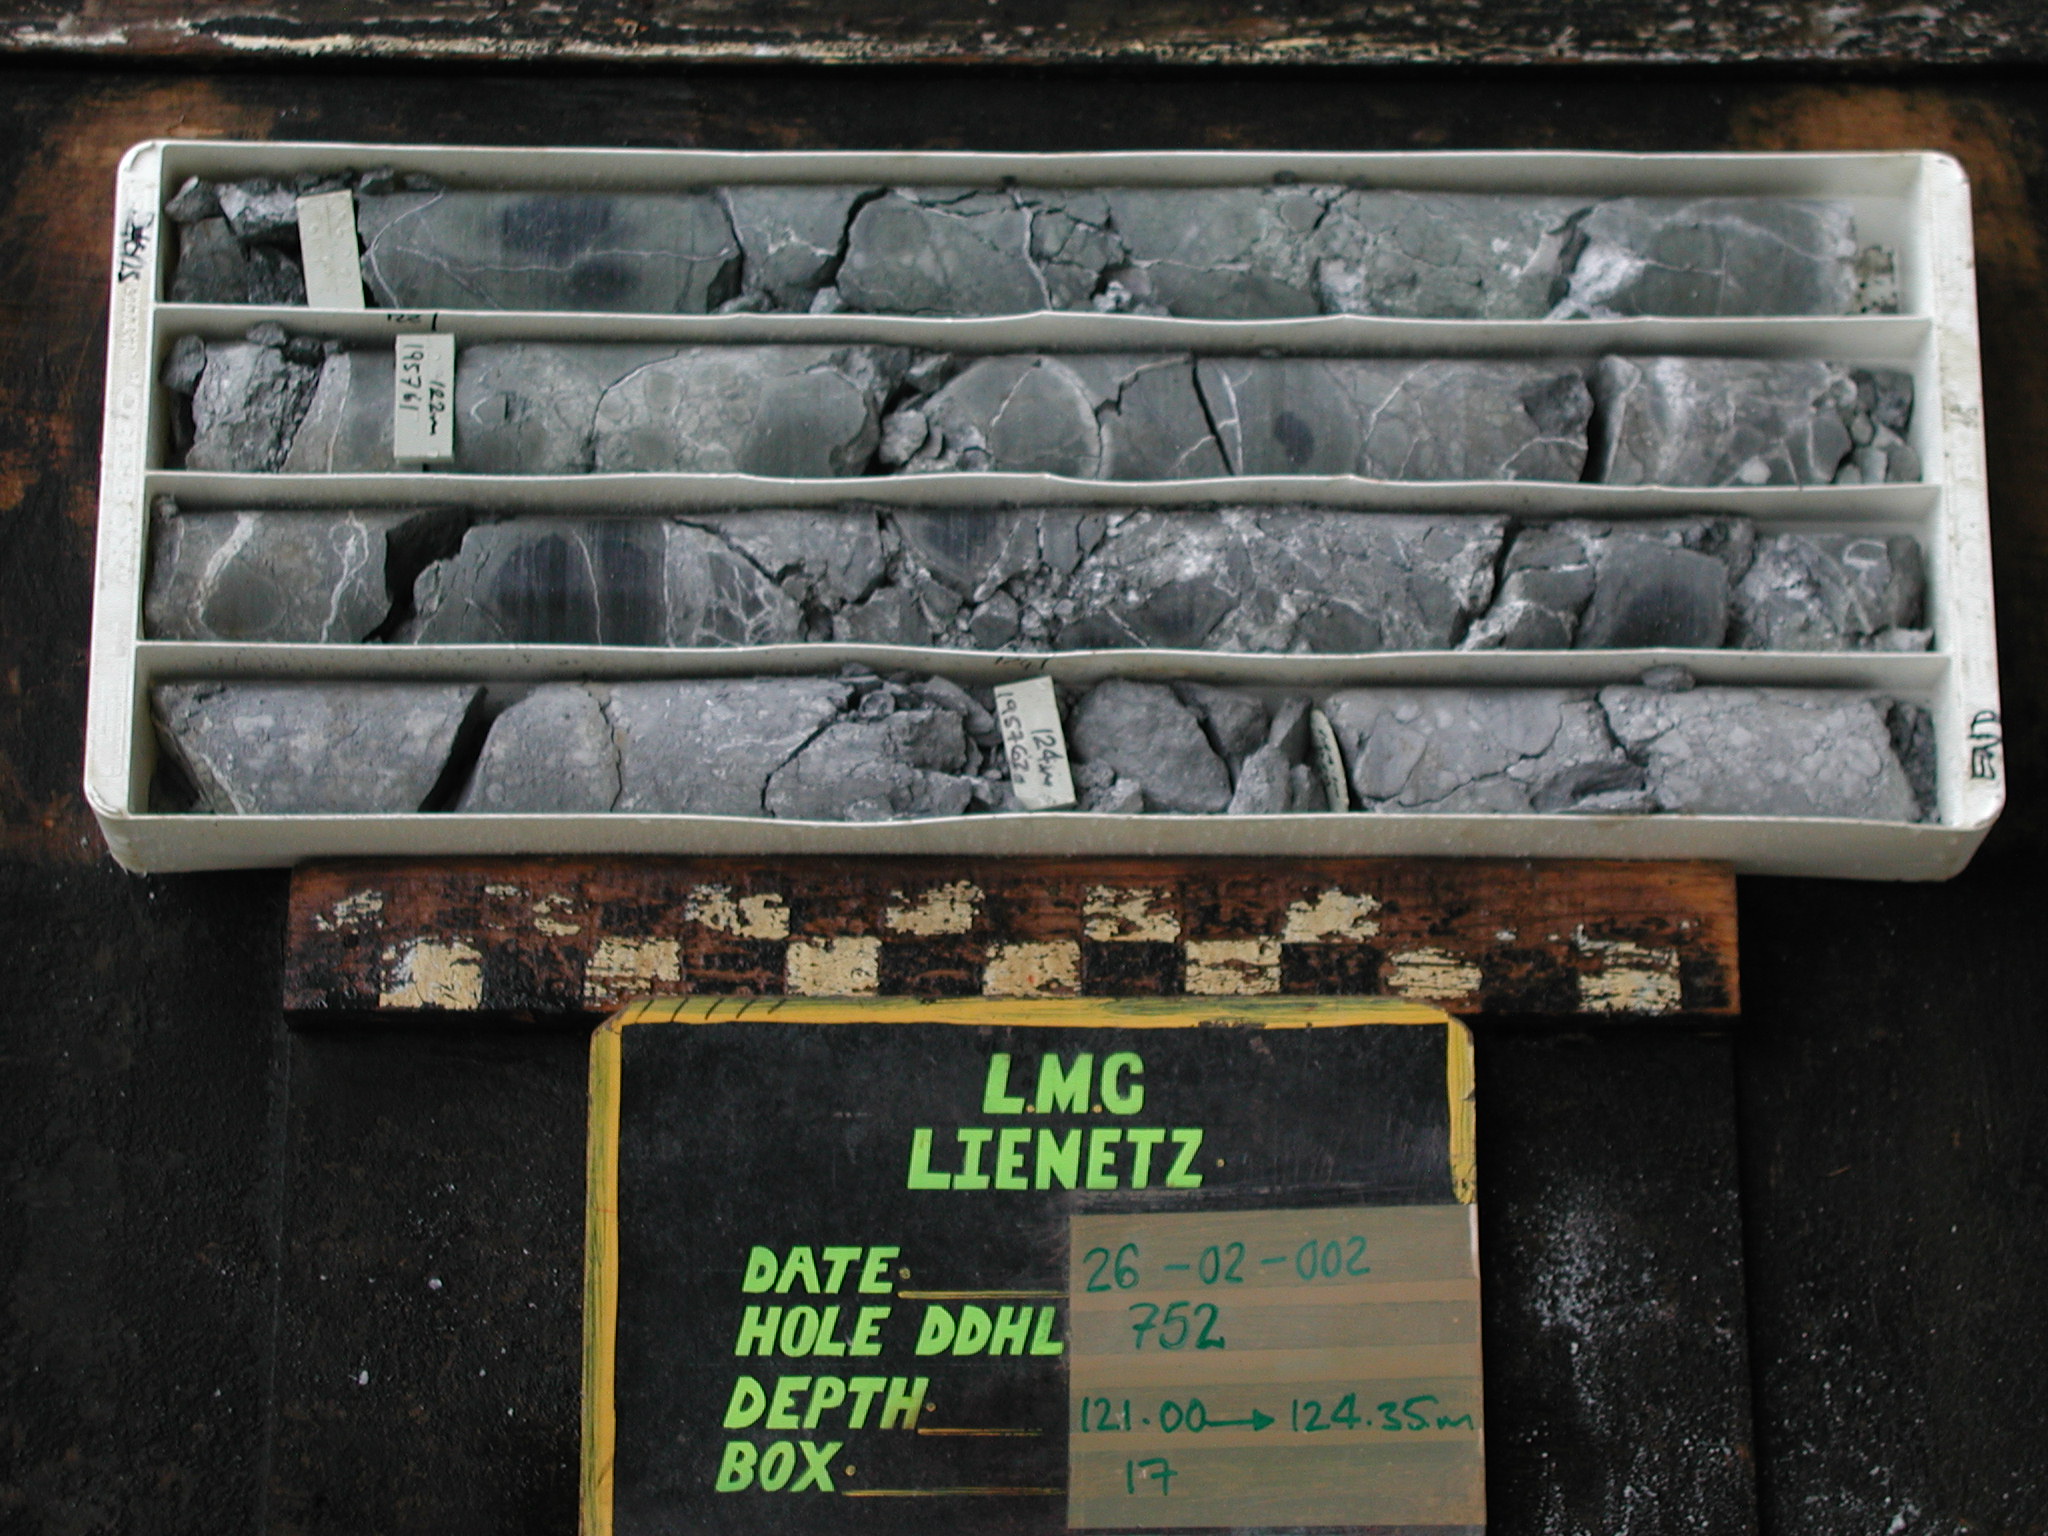 START
122
195761
122m
124
195762
124m
END
L.M.G
LIENETZ
DATE. 26-02-002
HOLE DDHL 752
DEPTH. 121.00→124.35m
BOX. 17